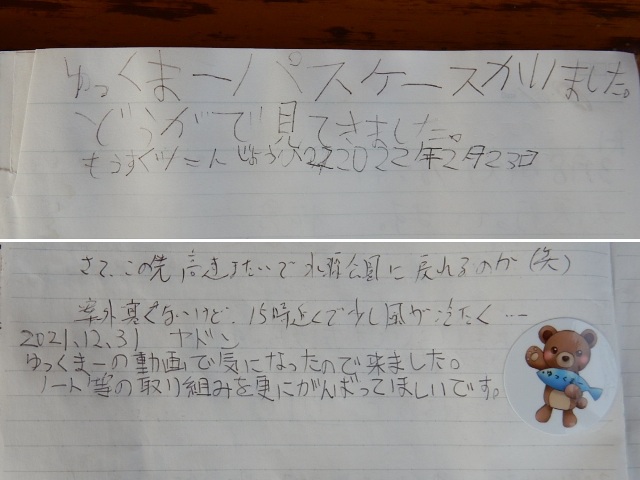 ゆっくまーパスケースかいました。
どうがで見てきました。
もうすぐツーんじょうび 2022年2月23日
さて、この先、高速みたいで水郷公園に戻れるのか(笑)
案外寒くないけど、15時近くで少し風が冷たく…
2021.12.31 ヤドン
ゆっくまーの動画で気になったので来ました。
ノート等の取り組みを更にがんばってほしいです。
ゆっくまー